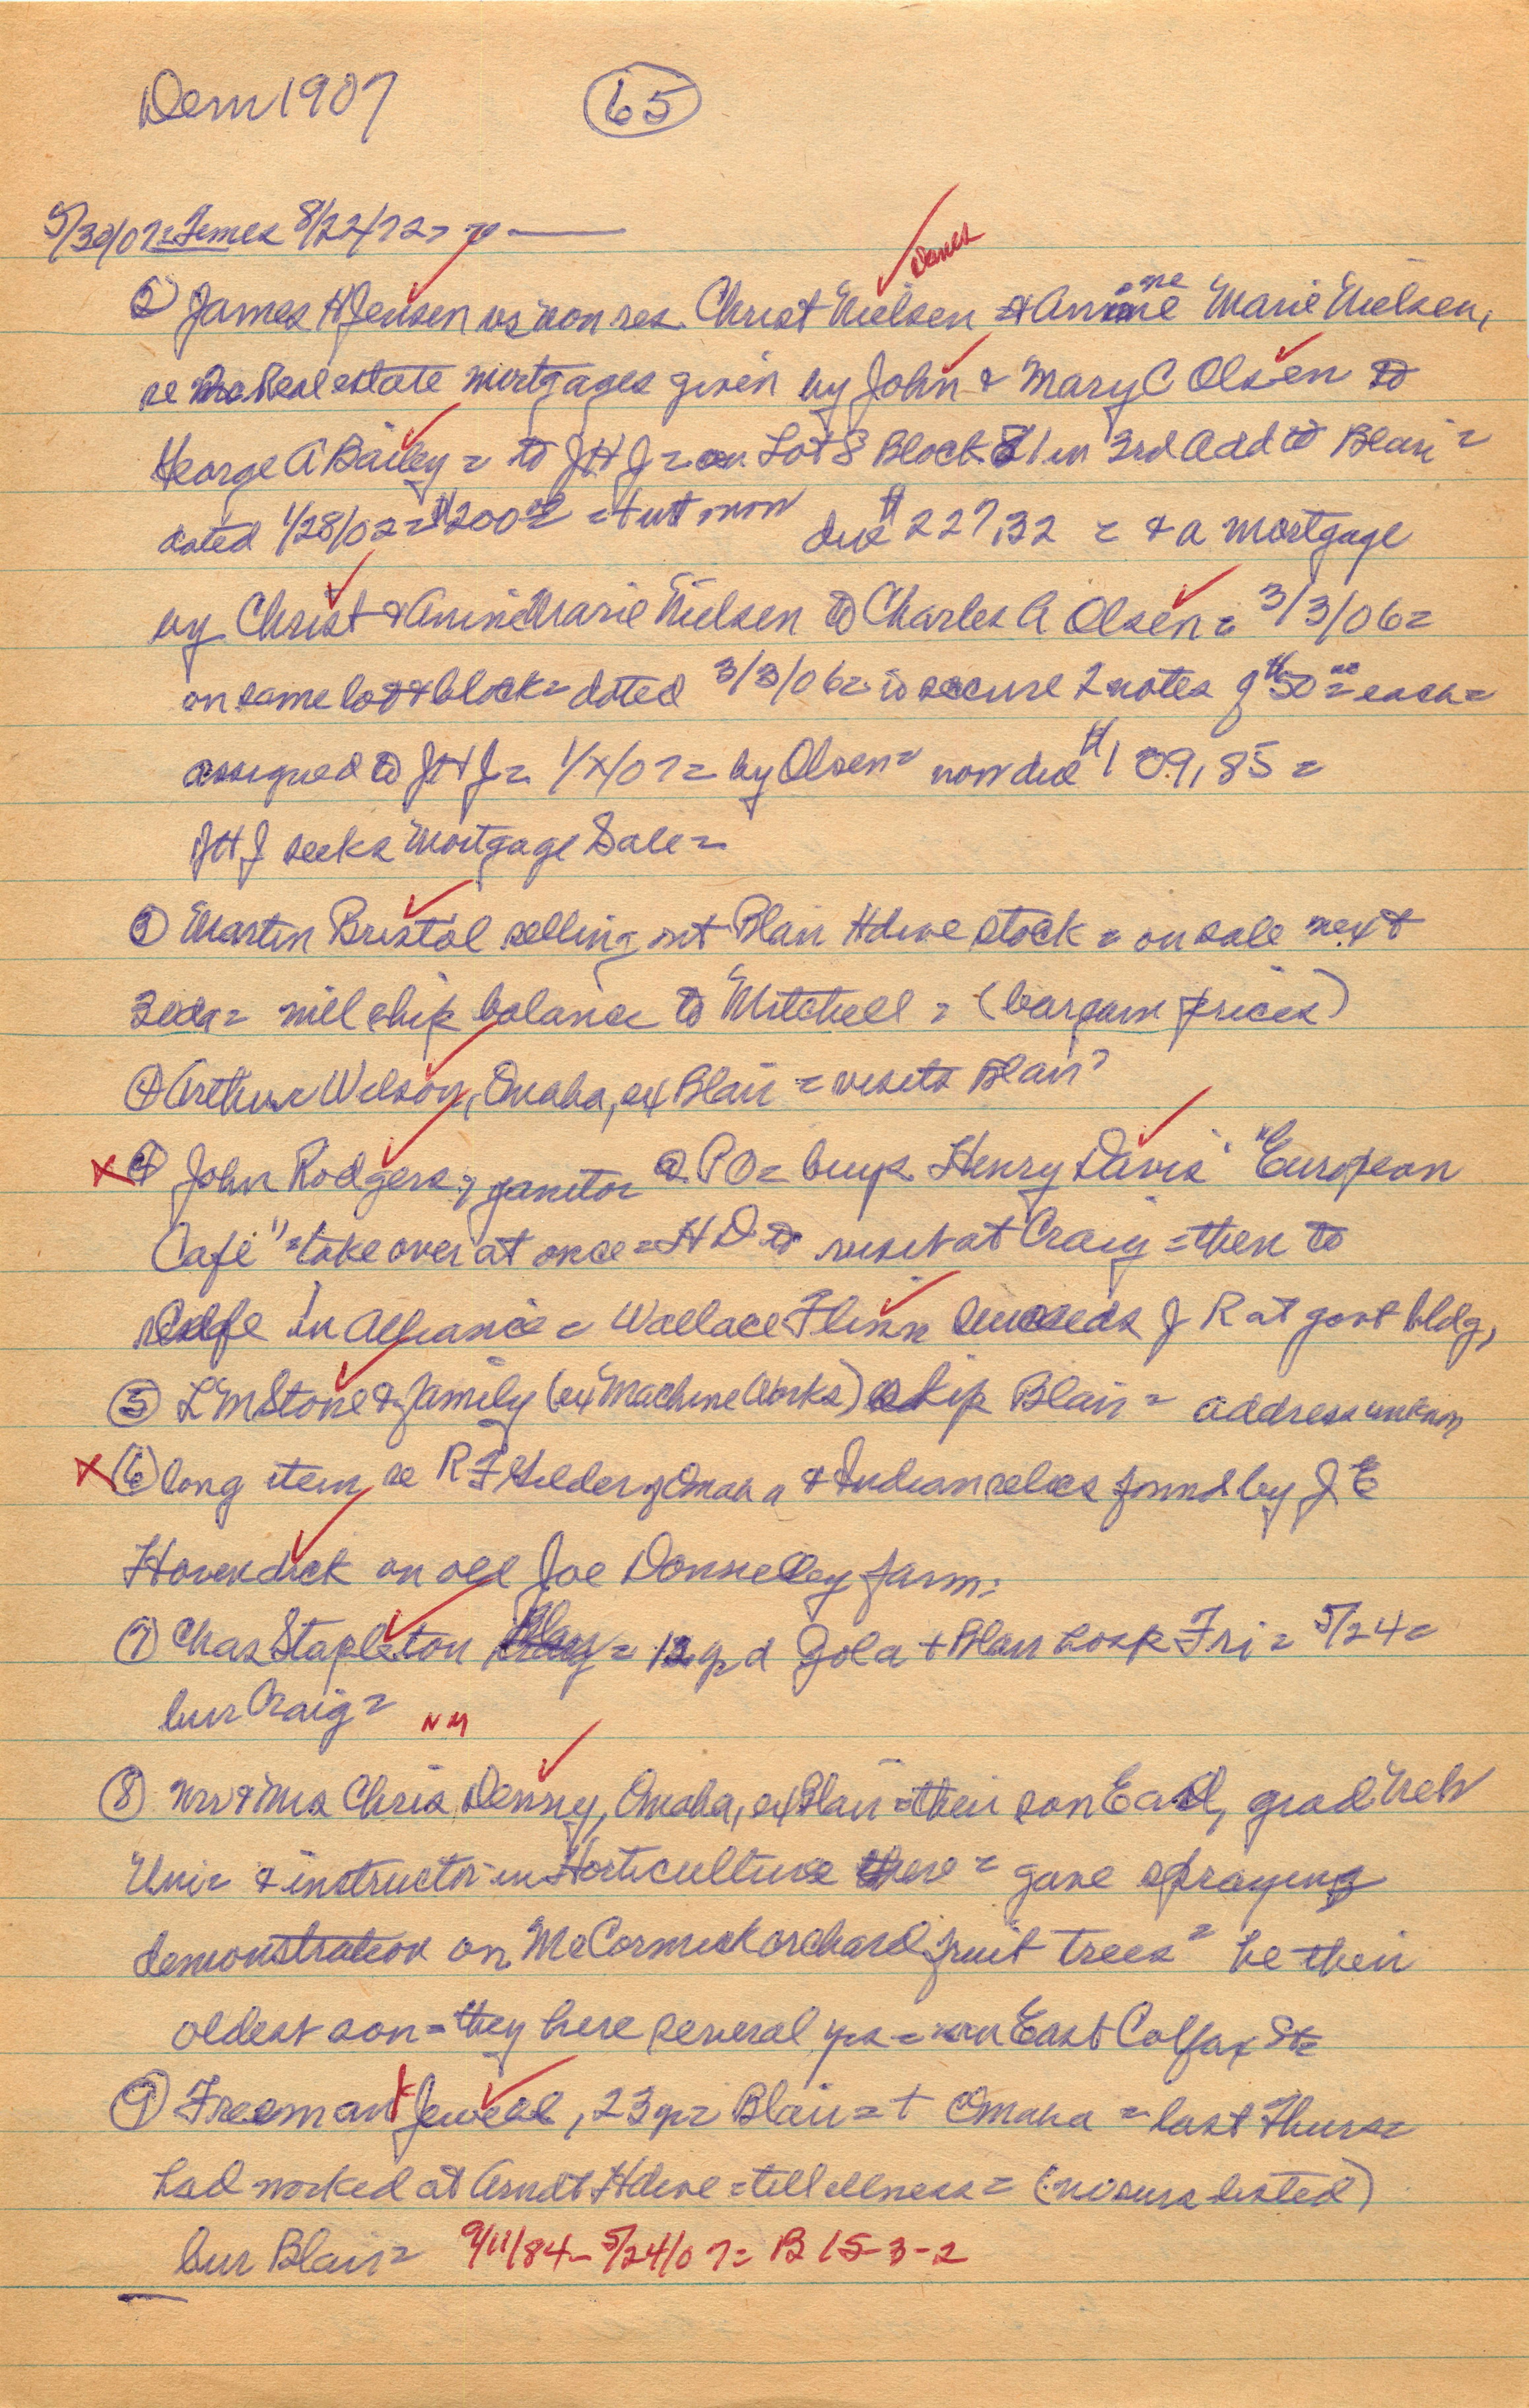 Dem 1907 65
5/30/07 = Temes 8/22/72 =
Danes
② James H Jensen vs non res. Christ Nielsen & Annine Marie Nielsen,
re Real estate mortgages given by John & Mary C Olsen to
George A Bailey = to JHJ = on Lot 8 Block 81 in 3rd Add to Blair =
dated 1/28/02 = $200 00 = + int now due $227.32 = & a mortgage
by Christ & Annine Marie Nielsen to Charles A Olsen = 3/3/06 =
on same lot & block = dated 3/3/06 = to secure 2 notes of $50 00 = each =
assigned to JHJ = 1/X/07 = by Olsen = now due $109.85 =
JHJ seeks Mortgage Sale =
③ Martin Bristol selling out Blair Hdwe stock = on sale next
30da = will ship balance to Mitchell = (bargain prices)
④ Arthur Wilson, Omaha, ex Blair = visits Blair =
X ④ John Rodgers, janitor @ PO = buys Henry Davis' "European
Café" = take over at once = HD to visit at Craig = then to
in Alliance = Wallace Flinn succeeds J R at govt bldg,
⑤ L M Stone & family (ex Machine Works) skip Blair = address unknown
X ⑥ long item re R F Gilder of Omaha & Indian relics found by J E
Hovendick on old Joe Donnelley farm =
⑦ Chas Stapleton = 12 yr d Gola + Blair Hosp Fri = 5/24 =
bur Craig = NM
⑧ Mr & Mrs Chris Denny, Omaha, ex Blair = their son Earl, grad Neb
Univ & instructor in Horticulture there = gave spraying
demonstration on McCormick orchard fruit trees = he their
oldest son = they here several yrs = on East Colfax St =
⑨ Freeman X Jewell, 23 yr = Blair = + Omaha = last Thurs =
had worked at Arndt Hdwe = till illness = (no surs listed)
bur Blair = 9/11/84 - 5/24/07 = B 15-3-2